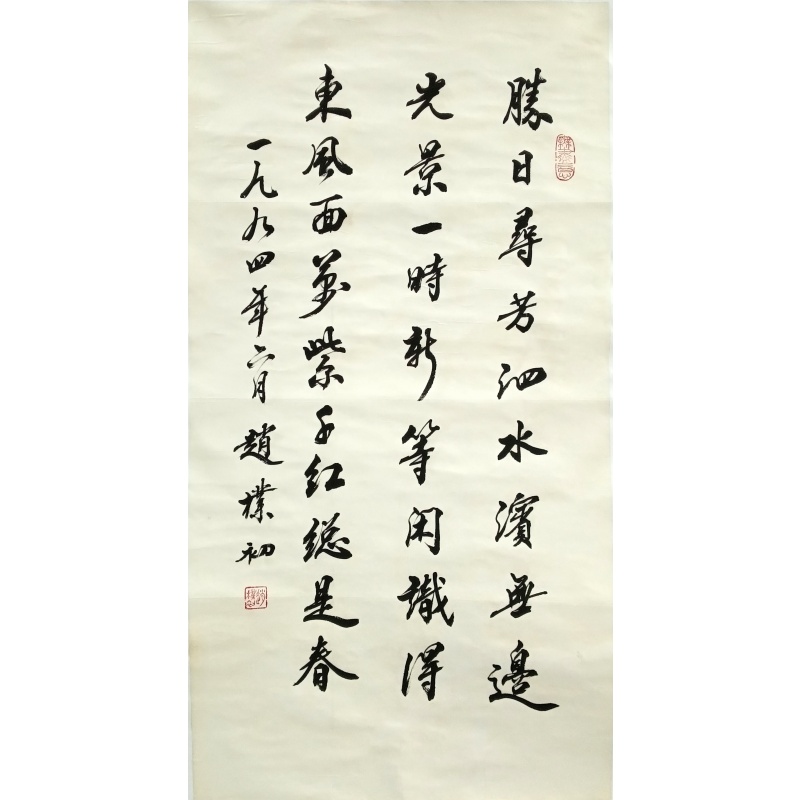 勝日尋芳泗水濱無邊
光景一時新等闲識得
東風面萬紫千红總是春
一九九四年六月趙樸初